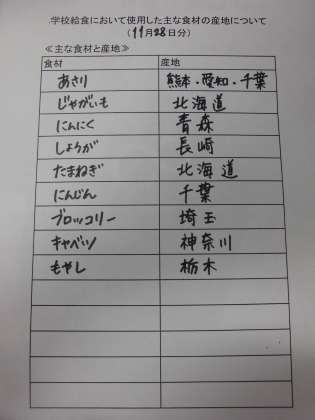 学校給食において使用した主な食材の産地について
(11月28日分)
≪主な食材と産地≫
食材 産地
あさり 熊本・愛知・千葉
じゃがいも 北海道
にんにく 青森
しょうが 長崎
たまねぎ 北海道
にんじん 千葉
ブロッコリー 埼玉
キャベツ 神奈川
もやし 栃木